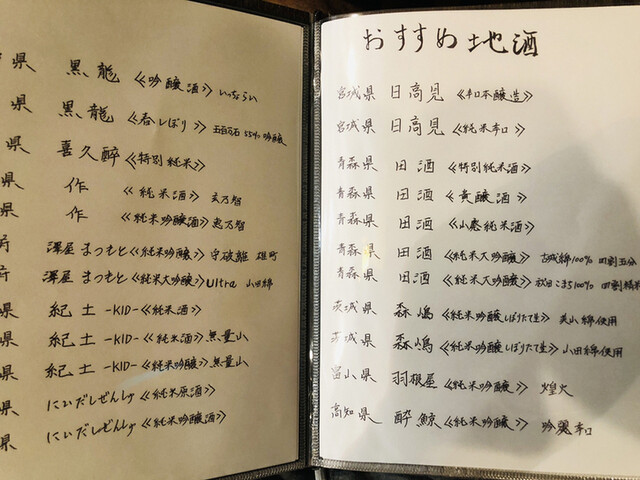 おすすめ地酒
宮城県 日高見 ≪辛口本醸造≫
宮城県 日高見 ≪純米辛口≫
青森県 田酒 ≪特別純米酒≫
青森県 田酒 ≪貴醸酒≫
青森県 田酒 ≪山廃純米酒≫
青森県 田酒 ≪純米大吟醸≫ 古城錦100% 四割五分
青森県 田酒 ≪純米大吟醸≫ 秋田こまち100% 四割
茨城県 森嶋 ≪純米吟醸しぼりたて生≫ 美山錦使用
茨城県 森嶋 ≪純米吟醸しぼりたて生≫ 山田錦使用
富山県 羽根屋 ≪純米吟醸≫ 煌火
高知県 酔鯨 ≪純米吟醸≫ 吟麗辛口
県 黒龍 ≪吟醸酒≫ いっちょらい
県 黒龍 ≪春しぼり≫ 五百万石 55% 吟醸
県 喜久酔 ≪特別純米≫
県 作 ≪純米酒≫ 玄乃智
県 作 ≪純米吟醸酒≫ 恵乃智
府 澤屋まつもと ≪純米吟醸≫ 守破離 雄町
府 澤屋まつもと ≪純米大吟醸≫ Ultra 山田錦
県 紀土 -KID- ≪純米酒≫
県 紀土 -KID- ≪純米酒≫ 無量山
県 紀土 -KID- ≪純米吟醸≫ 無量山
県 にいだしぜんしゅ ≪純米原酒≫
県 にいだしぜんしゅ ≪純米吟醸酒≫